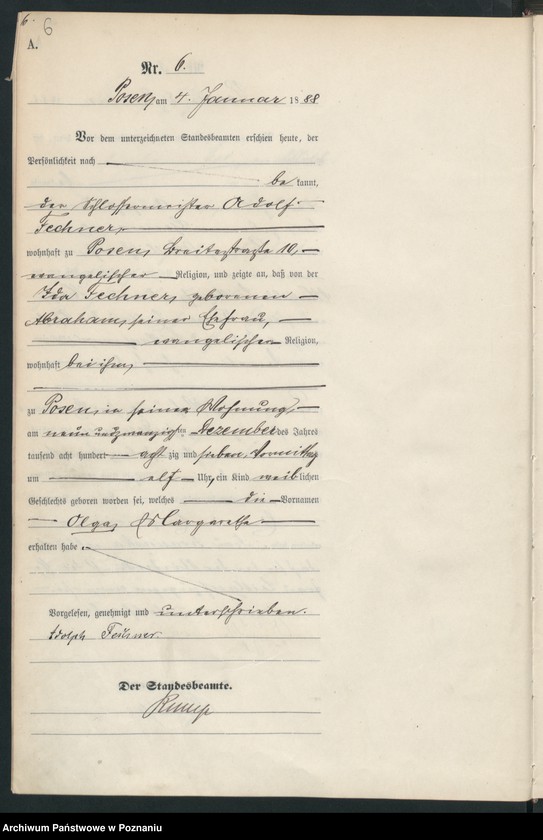 6. 6
A.
Nr. 6.
Posen, am 4. Januar 1888
Vor dem unterzeichneten Standesbeamten erschien heute, der
Persönlichkeit nach
be kannt,
der Schlossermeister Adolf
Fechner,
wohnhaft zu Posen, Breitestraße 10,
evangelischer Religion, und zeigte an, daß von der
Ida Fechner, geborenen
Abraham, seiner Ehefrau,
evangelischer Religion,
wohnhaft bei ihm,
zu Posen, in seiner Wohnung,
am neun und zwanzigsten Dezember des Jahres
tausend acht hundert acht zig und sieben, Vormittag
um elf Uhr, ein Kind weib lichen
Geschlechts geboren worden sei, welches die Vornamen
Olga, Margarethe
erhalten habe.
Vorgelesen, genehmigt und unterschrieben.
Adolph Fechner.
Der Standesbeamte.
Archiwum Państwowe w Poznaniu